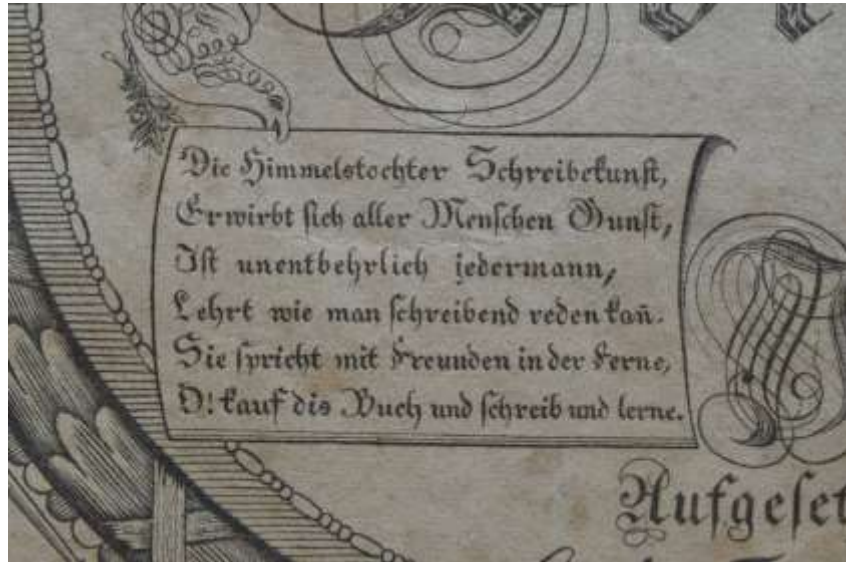 Die Himmelstochter Schreibekunſt,
Erwirbt ſich aller Menſchen Gunſt,
Iſt unentbehrlich jedermann,
Lehrt wie man ſchreibend reden kan̄.
Sie ſpricht mit Freunden in der Ferne,
O! kauf dis Buch und ſchreib und lerne.
Aufgeſet